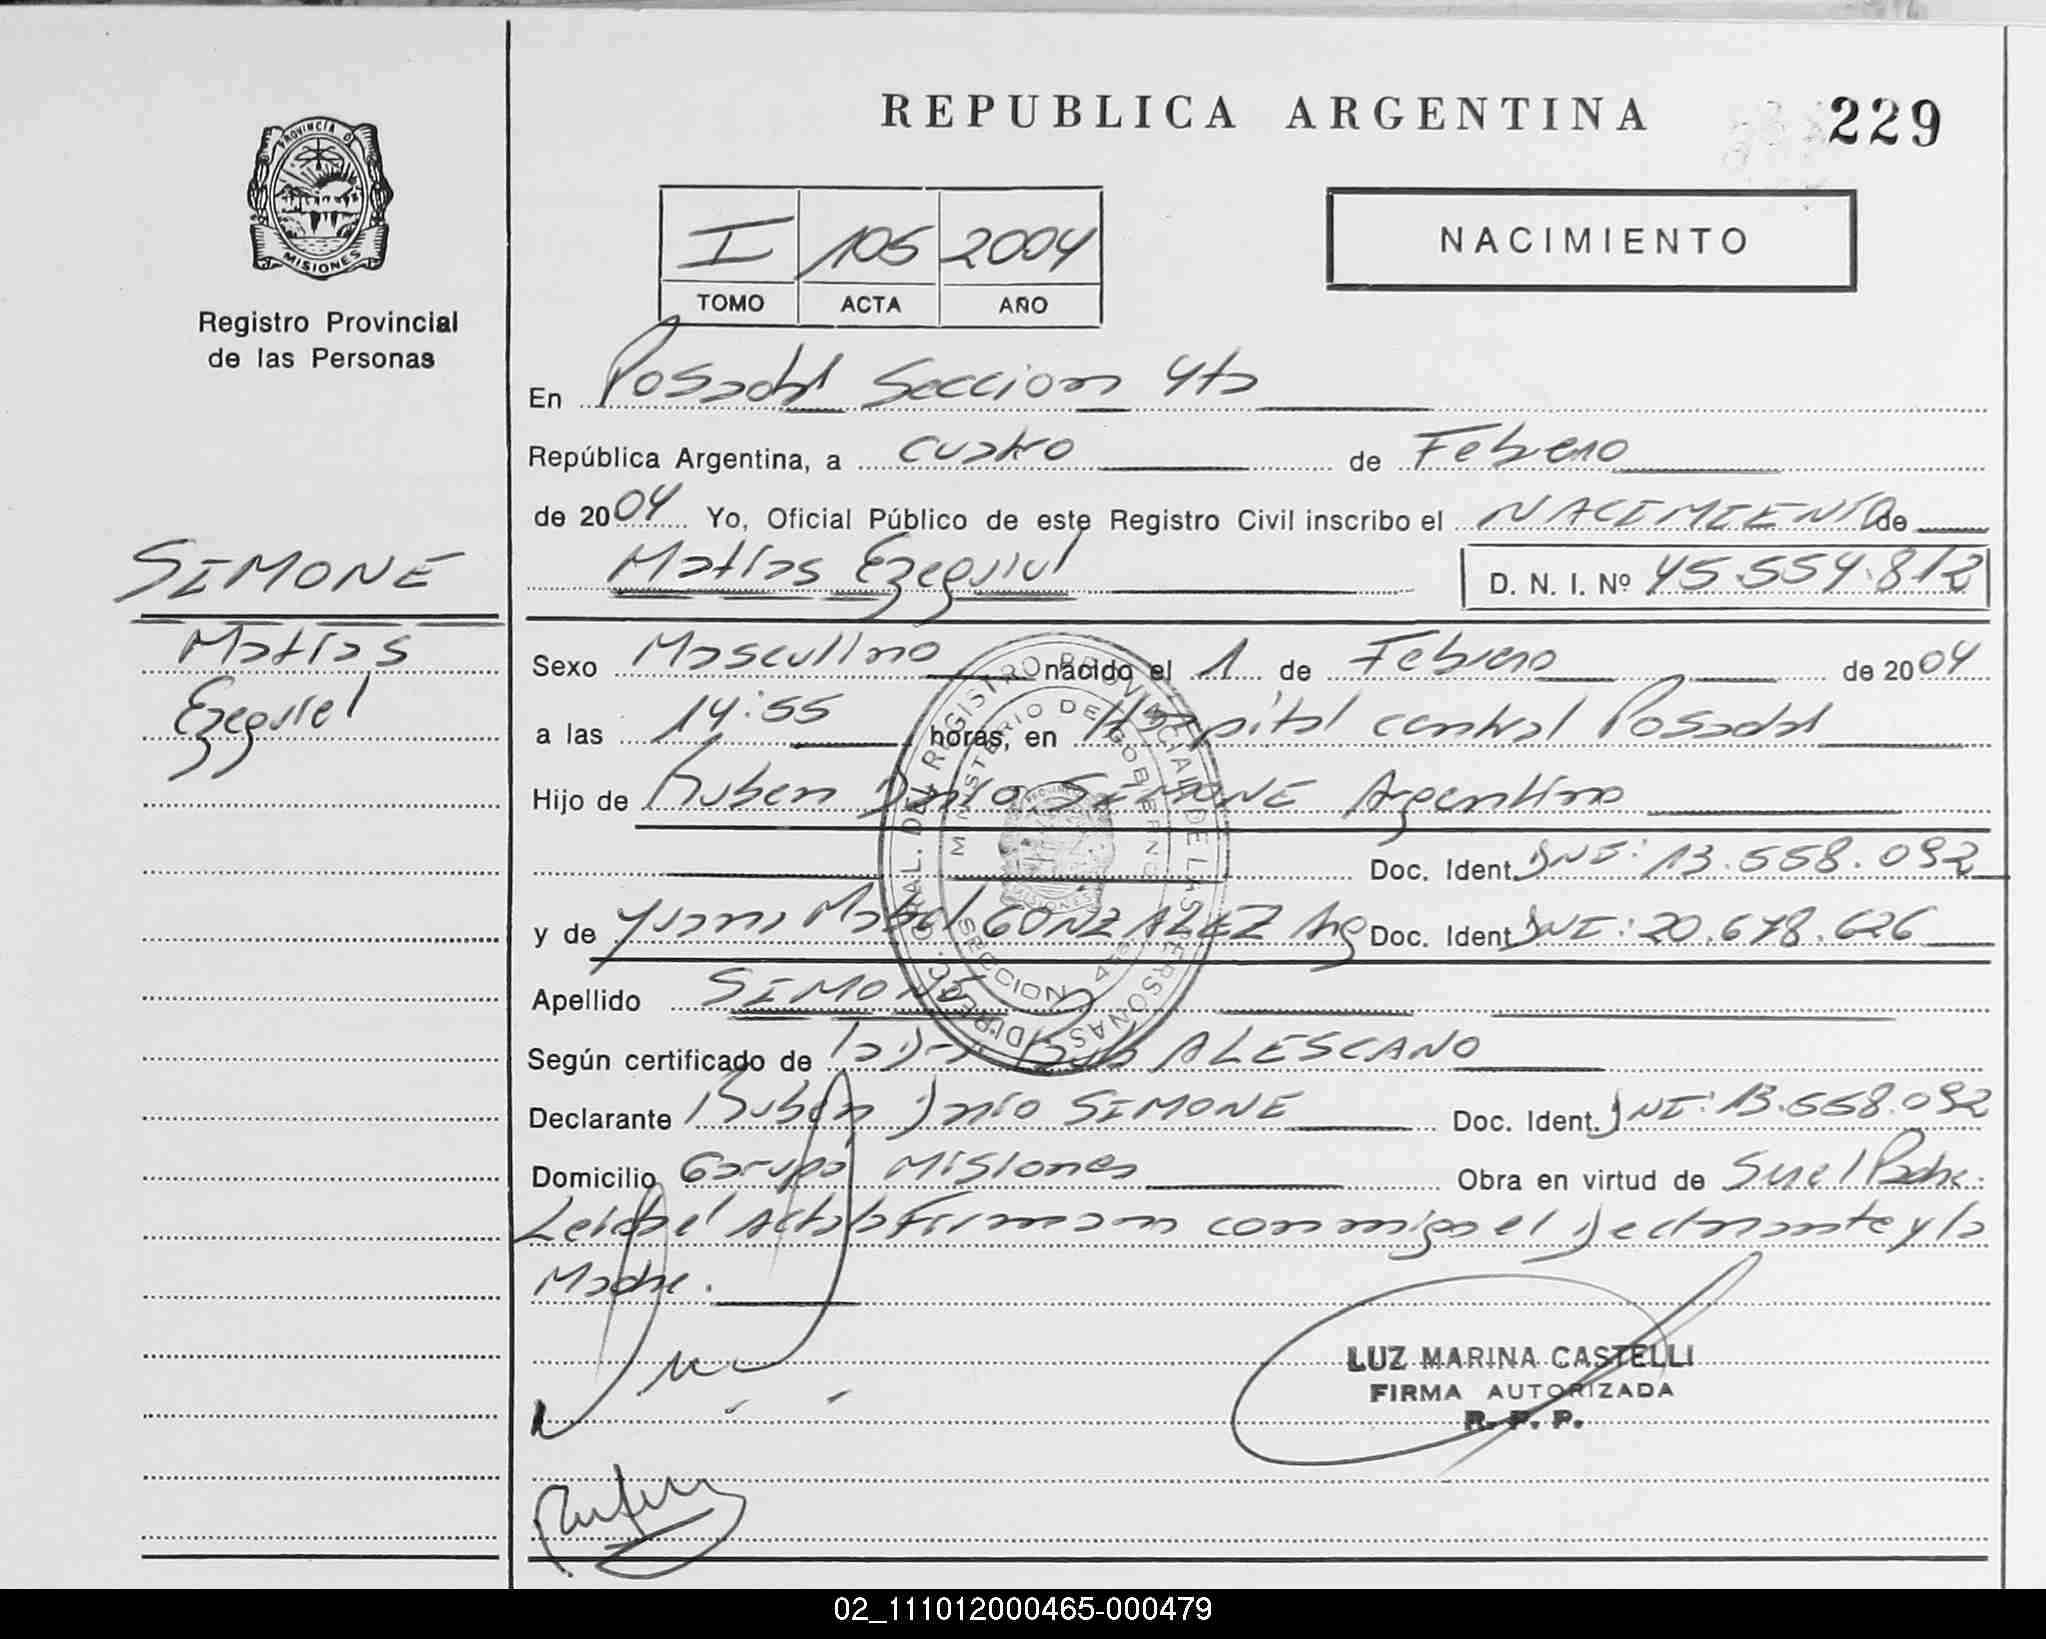 REPUBLICA ARGENTINA
229
PROVINCIA DE
MISIONES
Registro Provincial
de las Personas
I 105 2004
TOMO ACTA AÑO
NACIMIENTO
En Posadas Seccion 4ta
República Argentina, a cuatro de Febrero
de 2004 Yo, Oficial Público de este Registro Civil inscribo el NACIMIENTO de
Matías Ezequiel D. N. I. Nº 45.554.812
SIMONE
Matías
Ezequiel
Sexo Masculino nacido el 1 de Febrero de 2004
a las 14:55 horas, en Hospital central Posadas
Hijo de Ruben Dario SIMONE Argentino
Doc. Ident. DNI: 13.558.092
y de Mabel GONZALEZ Arg Doc. Ident. DNI: 20.678.626
Apellido SIMONE
Según certificado de ALESCANO
Declarante Ruben Dario SIMONE Doc. Ident. DNI: 13.558.092
Domicilio Garupá Misiones Obra en virtud de Ser el Padre.
Leida el Acta la Firman conmigo el declarante y la
Madre.
DIREC. GRAL. DEL REGISTRO PROVINCIAL DE LAS PERSONAS
MINISTERIO DE GOBIERNO
MISIONES
SECCION 4ta
LUZ MARINA CASTELLI
FIRMA AUTORIZADA
R. P. P.
02_111012000465-000479